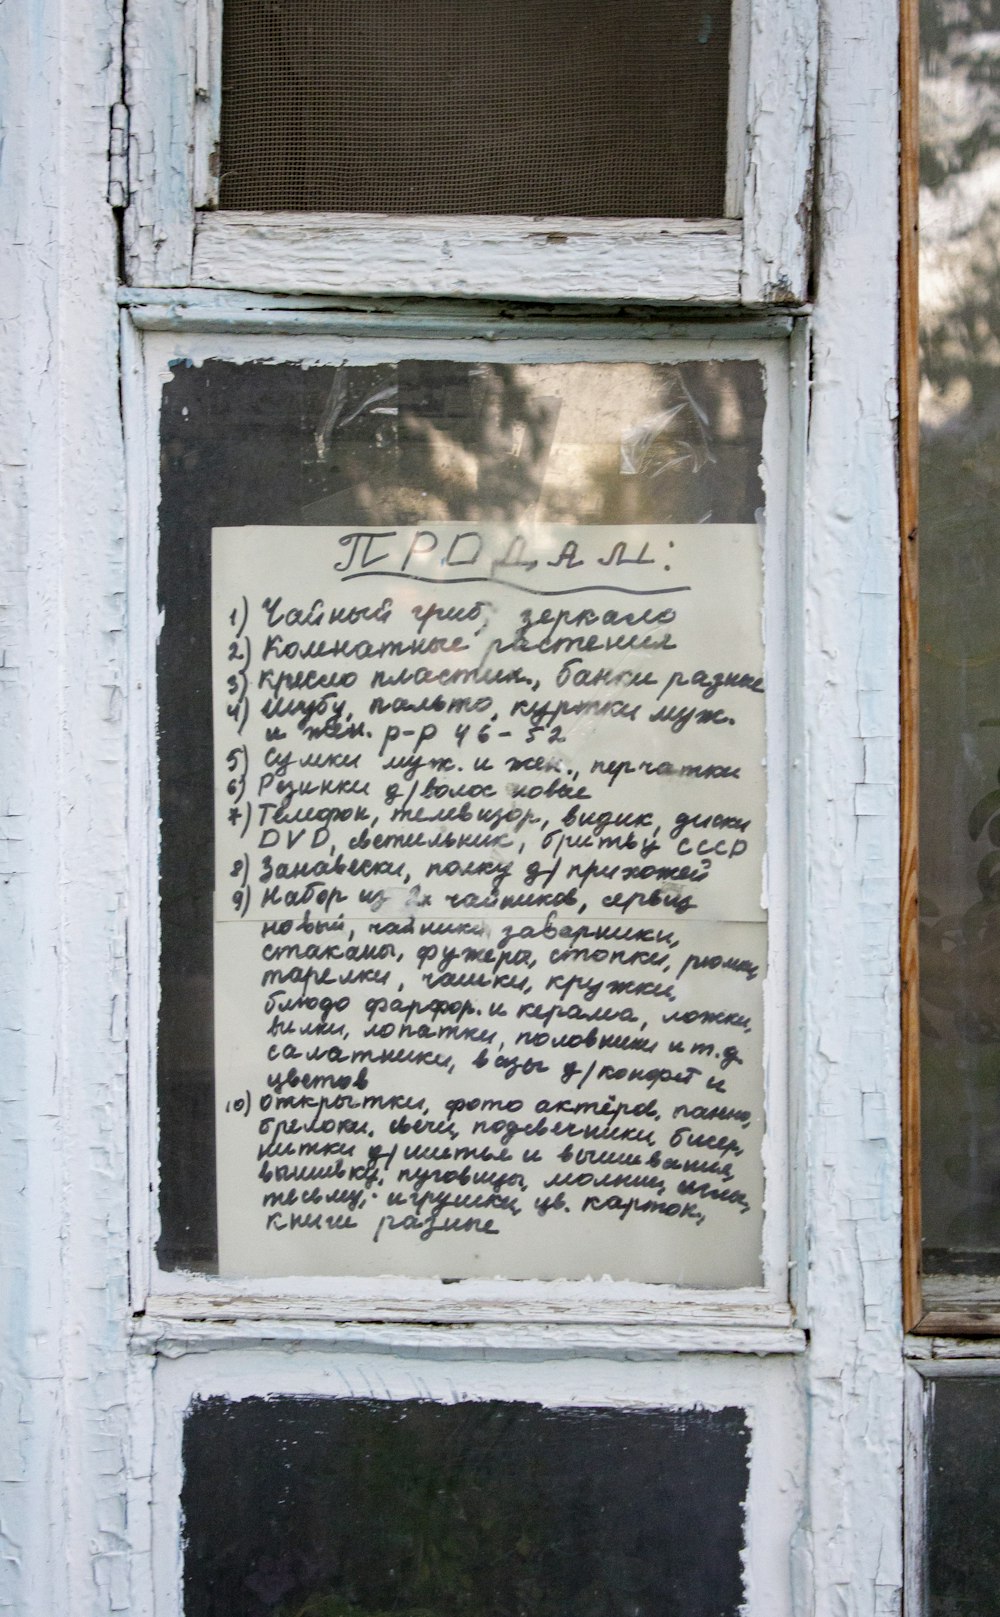 ПРОДАМ:
1) Чайный гриб, зеркало
2) Комнатные растения
3) кресло пластик., банки разные
4) шубу, пальто, куртки муж.
и жен. р-р 46-52
5) Сумки муж. и жен., перчатки
6) Резинки д/волос новые
7) Телефон, телевизор, видик, диски
DVD, светильник, бритву СССР
8) Занавески, полку д/прихожей
9) Набор из 2х чайников, сервиз
новый, чайники заварники,
стаканы, фужеры, стопки, рюмки,
тарелки, чашки, кружки,
блюдо фарфор. и керамика, ложки,
вилки, лопатки, половники и т.д.
салатники, вазы д/конфет и
цветов
10) открытки, фото актёров, панно,
брелоки, свечи, подсвечники, бисер,
нитки д/шитья и вышивания,
вышивку, пуговицы, молнии, иглы,
тесьму, игрушки, цв. картон,
книги разные